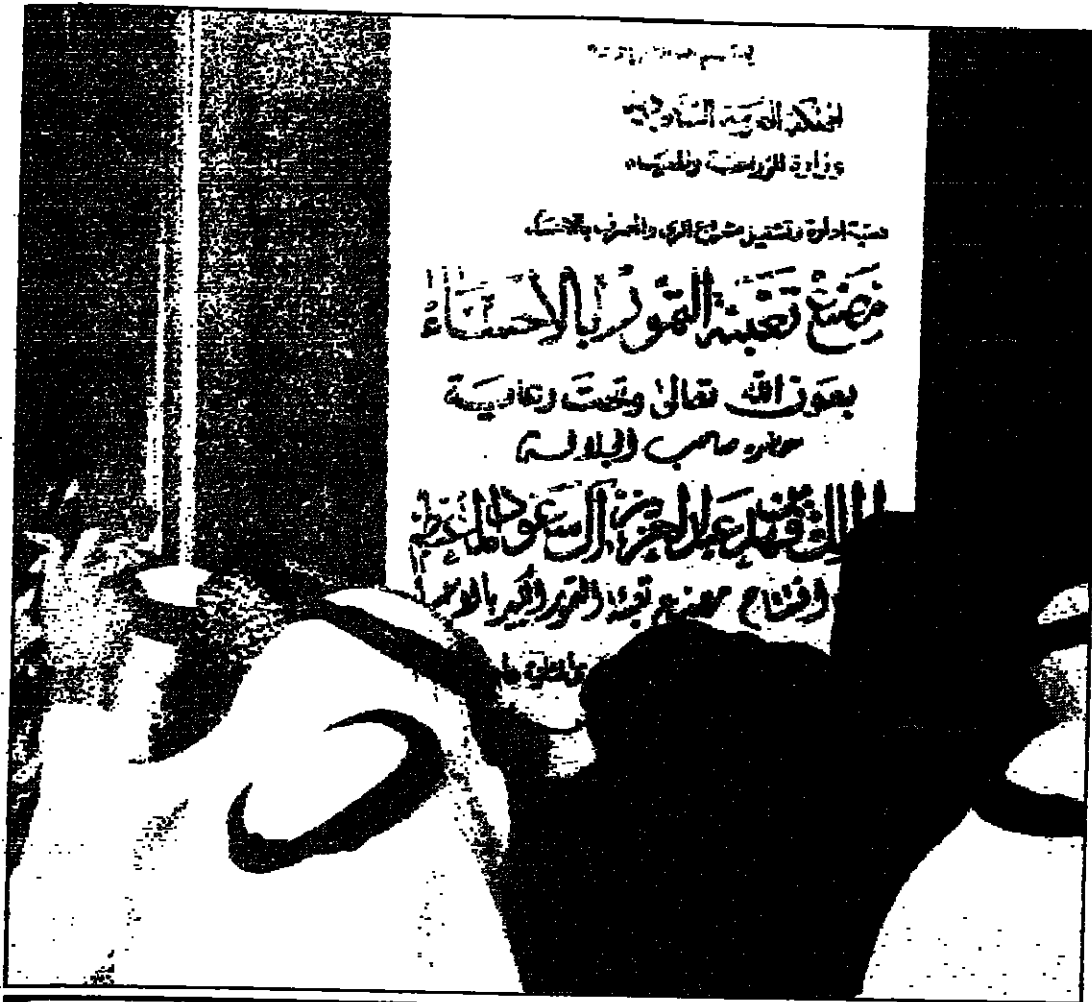 بسم الله الرحمن الرحيم
المملكة العربية السعودية
وزارة الزراعة والمياه
هيئة إدارة وتشغيل مشروع الري والصرف بالاحساء
مصنع تعبئة التمور بالاحساء
بعون الله تعالى وتحت رعاية
حضرة صاحب الجلالة
الملك فهد بن عبد العزيز آل سعود المعظم
افتتاح مصنع تعبئة التمور الكبير بالاحساء